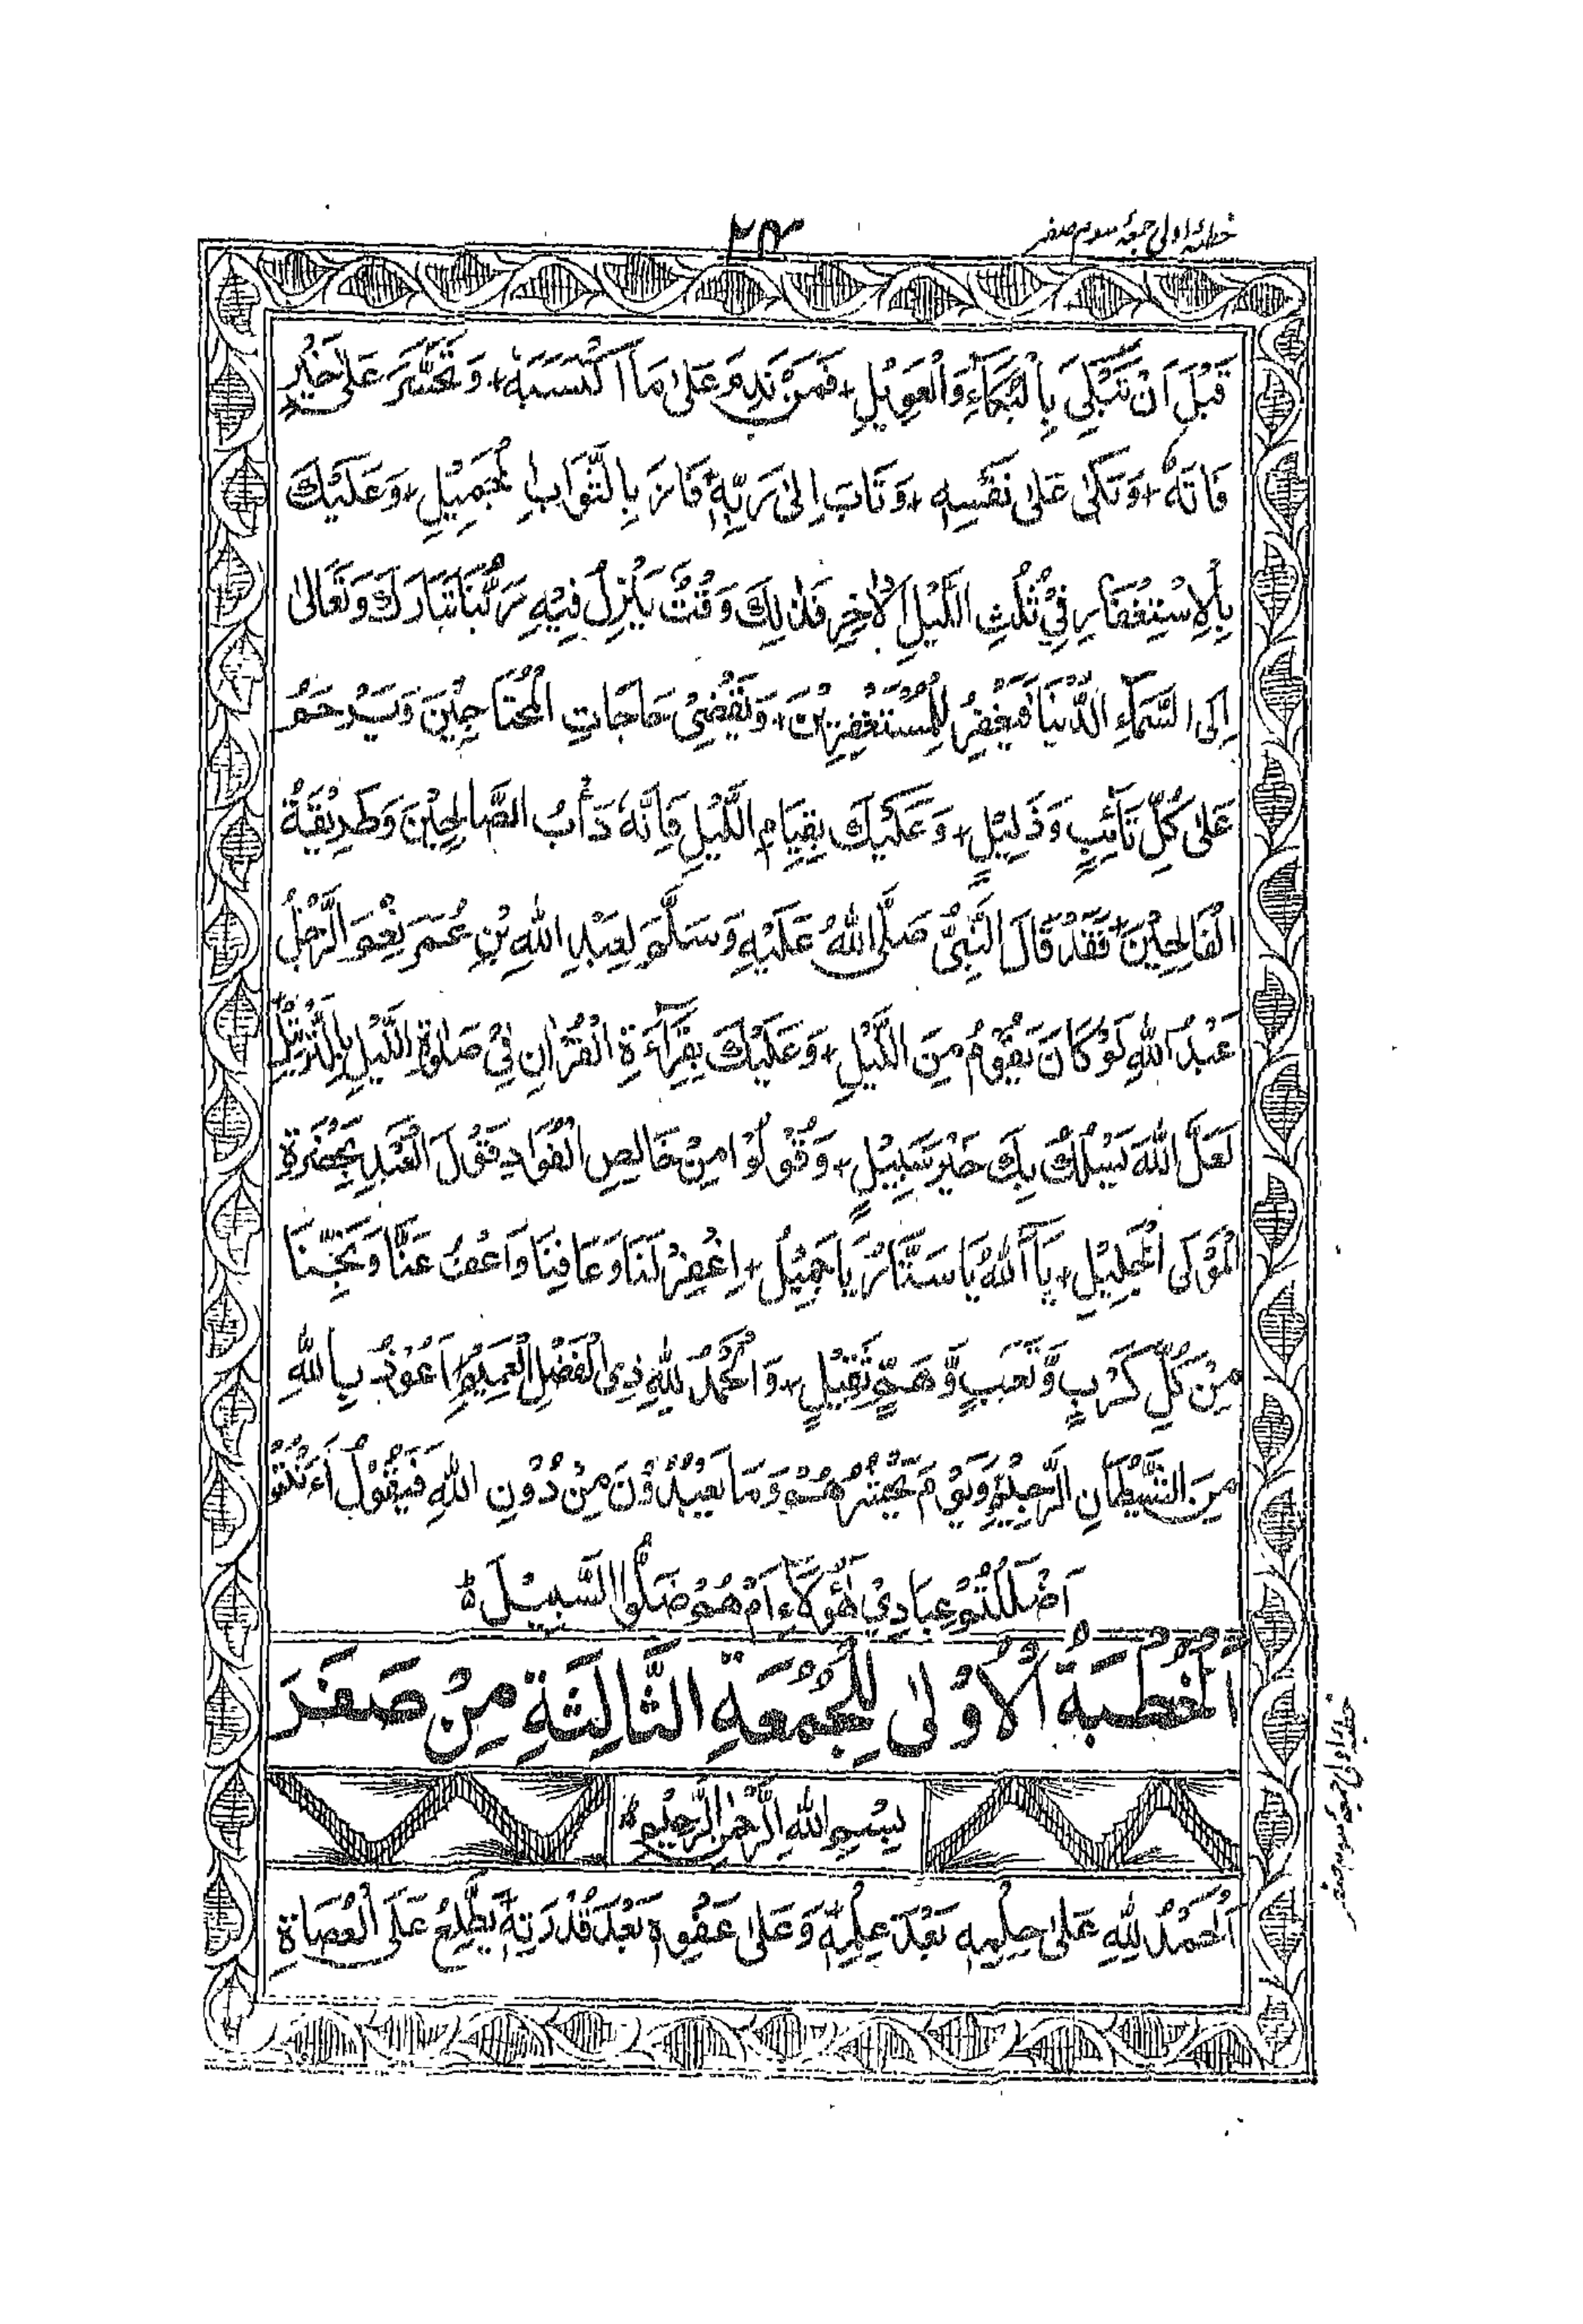 خطبهٔ اولی جمعهٔ سوم صفر
٢٣
قَبْلَ اَنْ تُبْتَلٰى بِالْبُكَآءِ وَالْعَوِيْلِ + فَمَنْ نَدِمَ عَلٰى مَا اكْتَسَبَهٗ + وَتَحَسَّرَ عَلٰى خَيْرٍ
فَاتَهٗ + وَبَكٰى عَلٰى نَفْسِهٖ + وَتَابَ اِلٰى رَبِّهٖ فَازَ بِالثَّوَابِ الْجَمِيْلِ + وَعَلَيْكَ
بِالْاِسْتِغْفَارِ فِيْ ثُلُثِ اللَّيْلِ الْاٰخِرِ فَذٰلِكَ وَقْتٌ يَنْزِلُ فِيْهِ رَبُّنَا تَبَارَكَ وَتَعَالٰى
اِلَى السَّمَآءِ الدُّنْيَا فَيَغْفِرُ لِلْمُسْتَغْفِرِيْنَ + وَيَقْضِيْ حَاجَاتِ الْمُحْتَاجِيْنَ وَيَرْحَمُ
عَلٰى كُلِّ تَآئِبٍ وَذَلِيْلٍ + وَعَلَيْكَ بِقِيَامِ اللَّيْلِ فَاِنَّهٗ دَأْبُ الصَّالِحِيْنَ وَطَرِيْقَةُ
الْفَالِحِيْنَ + فَقَدْ قَالَ النَّبِيُّ صَلَّى اللّٰهُ عَلَيْهِ وَسَلَّمَ لِعَبْدِ اللّٰهِ بْنِ عُمَرَ نِعْمَ الرَّجُلُ
عَبْدُ اللّٰهِ لَوْ كَانَ يَقُوْمُ مِنَ اللَّيْلِ + وَعَلَيْكَ بِقِرَآءَةِ الْقُرْاٰنِ فِيْ صَلٰوةِ اللَّيْلِ بِالتَّرْتِيْلِ
لَعَلَّ اللّٰهَ يَسْلُكُ بِكَ خَيْرَ سَبِيْلٍ + وَقُوْلُوْا مِنْ خَالِصِ الْفُؤَادِ قَوْلَ الْعَبْدِ بِحَضْرَةِ
الْمَوْلَى الْجَلِيْلِ + يَآ اَللّٰهُ يَا سَتَّارُ يَا جَمِيْلُ + اِغْفِرْ لَنَا وَعَافِنَا وَاعْفُ عَنَّا وَنَجِّنَا
مِنْ كُلِّ كَرْبٍ وَّتَعَبٍ وَّهَمٍّ ثَقِيْلٍ + وَالْحَمْدُ لِلّٰهِ ذِى الْفَضْلِ الْعَمِيْمِ اَعُوْذُ بِاللّٰهِ
مِنَ الشَّيْطَانِ الرَّجِيْمِ وَيَوْمَ يَحْشُرُهُمْ وَمَا يَعْبُدُوْنَ مِنْ دُوْنِ اللّٰهِ فَيَقُوْلُ ءَاَنْتُمْ
اَضْلَلْتُمْ عِبَادِيْ هٰٓؤُلَآءِ اَمْ هُمْ ضَلُّوا السَّبِيْلَ ط
اَلْخُطْبَةُ الْاُوْلٰى لِلْجُمُعَةِ الثَّالِثَةِ مِنْ صَفَرَ
بِسْمِ اللّٰهِ الرَّحْمٰنِ الرَّحِيْمِ
اَلْحَمْدُ لِلّٰهِ عَلٰى حِلْمِهٖ بَعْدَ عِلْمِهٖ وَعَلٰى عَفْوِهٖ بَعْدَ قُدْرَتِهٖ يَطَّلِعُ عَلَى الْعُصَاةِ
خطبهٔ اولی جمعهٔ سوم صفر